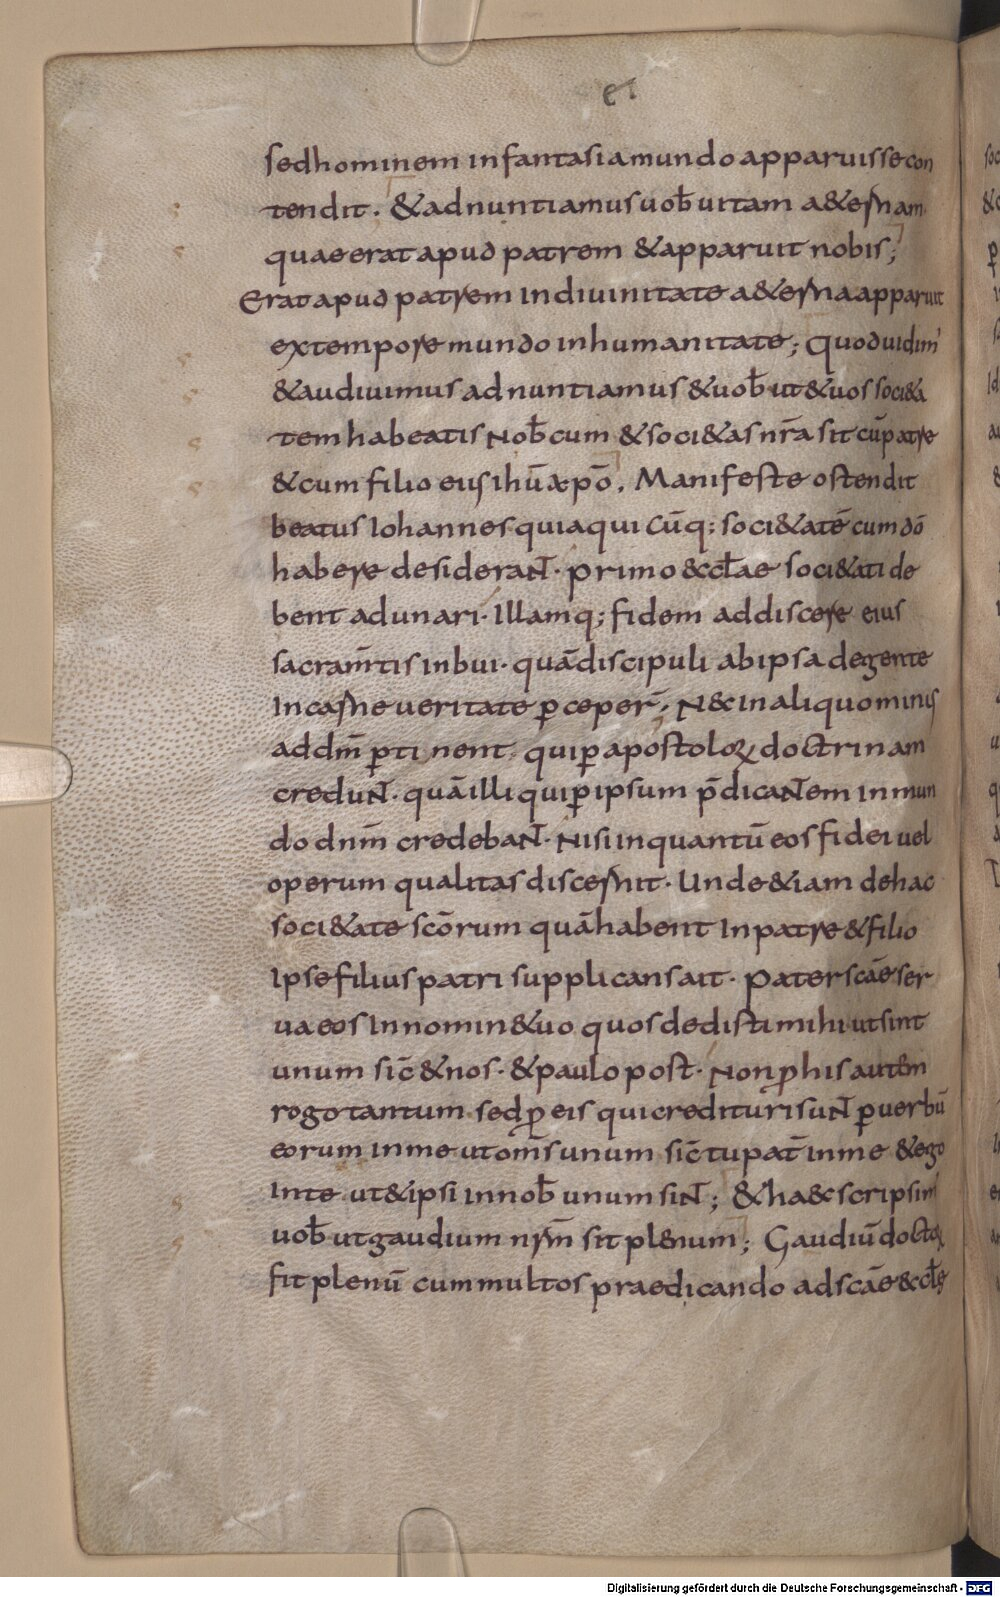 et
sedhominem infantasia mundo apparuisse con
tendit. &adnuntiamus uob̄ uitam a&ernam
quae erat apud patrem &apparuit nobis;
Erat apud patrem indiuinitate a&erna apparuit
extempore mundo inhumanitate; Quod uidim'
&audiuimus adnuntiamus &uob̄ ut&uos soci&a
tem habeatis Nob̄cum &soci&as nr̄a sit cū patre
&cum filio eius ihū xp̄o. Manifeste ostendit
beatus Iohannes quia qui cūq; soci&atē cum dō
habere desiderant. primo &cclae soci&ati de
bent adunari. Illamq; fidem addiscere eius
sacram̄tis inbui. quā discipuli ab ipsa degente
In carne ueritate ꝑceper̄. N& in aliquo minus
addm̄ ꝑtinent quiꝑ apostoloꝝ doctrinam
credunt. quā illi quiꝑ ipsum p̄dicantem in mun
do dnm̄ credebant. Nisi inquantū eos fidei uel
operum qualitas discernit. Unde &iam dehac
soci&ate scōrum quā habent In patre &filio
Ipse filius patri supplicans ait. Pater scāe ser
ua eos In nomine tuo quos dedisti mihi ut sint
unum sic̄ &nos. &paulo post. Non ꝓ his autem
rogo tantum sed ꝓ eis qui credituri sunt ꝑ uerbū
eorum inme ut om̄s unum sic̄ tu pat̄ inme &ego
Inte ut&ipsi innob̄ unum sint; &haec scripsim'
uob̄ ut gaudium nrm̄ sit plenum; Gaudiū doctoꝝ
fit plenū cum multos praedicando ad scāe &ccl̄ę
Digitalisierung gefördert durch die Deutsche Forschungsgemeinschaft - DFG